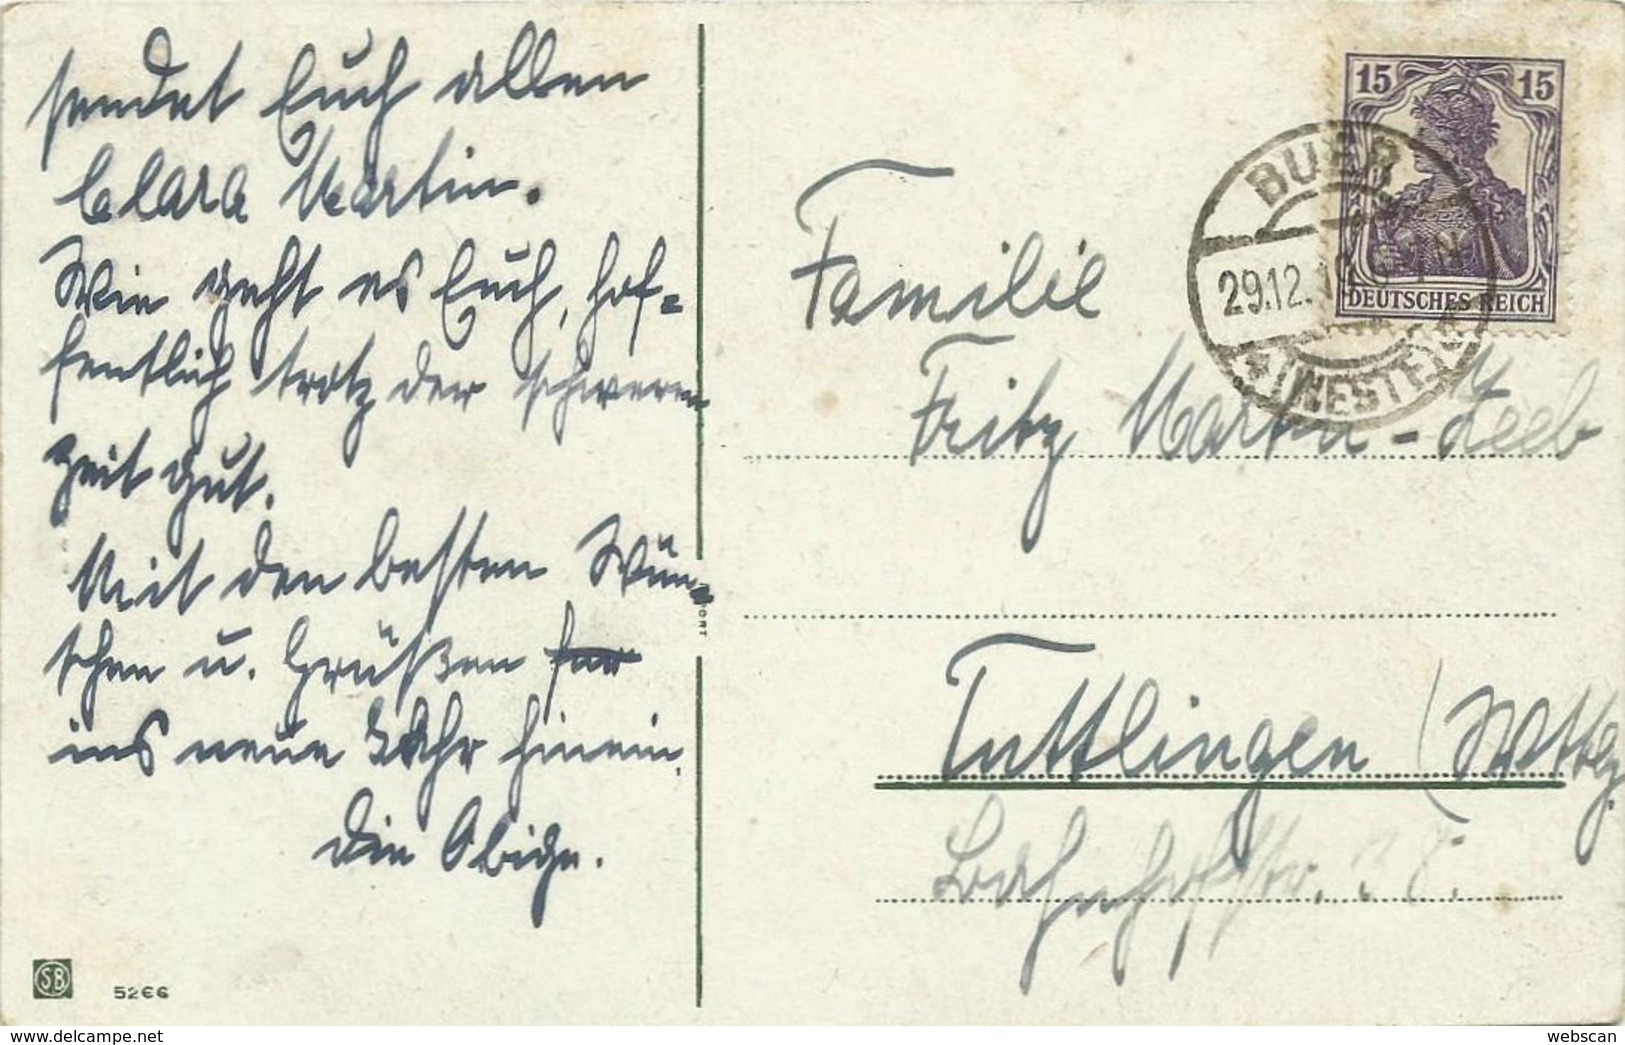 sendet Euch allen
Clara Martin.
Wie geht es Euch, hof=
fentlich trotz der schweren
Zeit gut.
Mit den besten Wün-
schen u. Grüßen für
ins neue Jahr hinein.
Die Obige.
SB
5266
15 15
DEUTSCHES REICH
BUER
29.12.19
(WESTF)
Familie
Fritz Martin-Zeeb
Tuttlingen (Wttbg.
Bahnhofstr.
delcampe.net
webscan